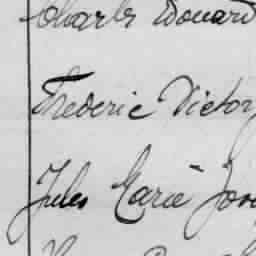 Charles Edouard
Frederic Victor
Jules Marie